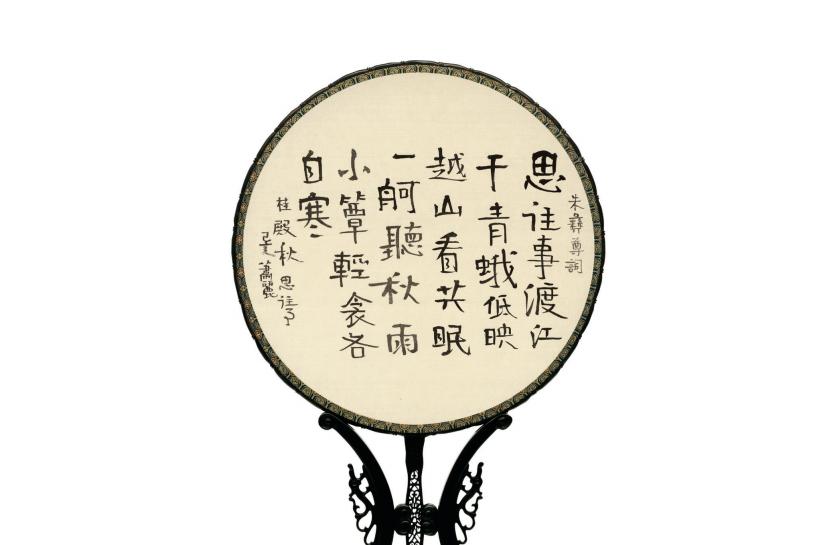 朱彝尊詞
思往事渡江
干青蛾低映
越山看共眠
一舸聽秋雨
小簟輕衾各
自寒
桂殿秋 思往事
蕭麗